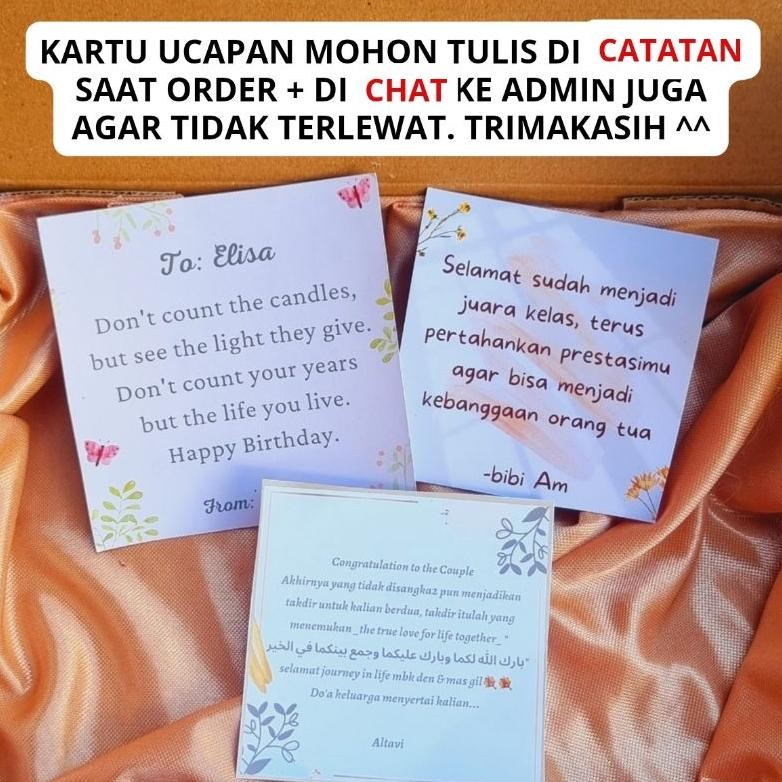 KARTU UCAPAN MOHON TULIS DI CATATAN
SAAT ORDER + DI CHAT KE ADMIN JUGA
AGAR TIDAK TERLEWAT. TRIMAKASIH ^^
To: Elisa
Don't count the candles,
but see the light they give.
Don't count your years
but the life you live.
Happy Birthday.
From:
Selamat sudah menjadi
juara kelas, terus
pertahankan prestasimu
agar bisa menjadi
kebanggaan orang tua
-bibi Am
Congratulation to the Couple
Akhirnya yang tidak disangka2 pun menjadikan
takdir untuk kalian berdua, takdir itulah yang
menemukan _the true love for life together_"
"بارك الله لكما وبارك عليكما وجمع بينكما في الخير
selamat journey in life mbk den & mas gil
Do'a keluarga menyertai kalian...
Altavi